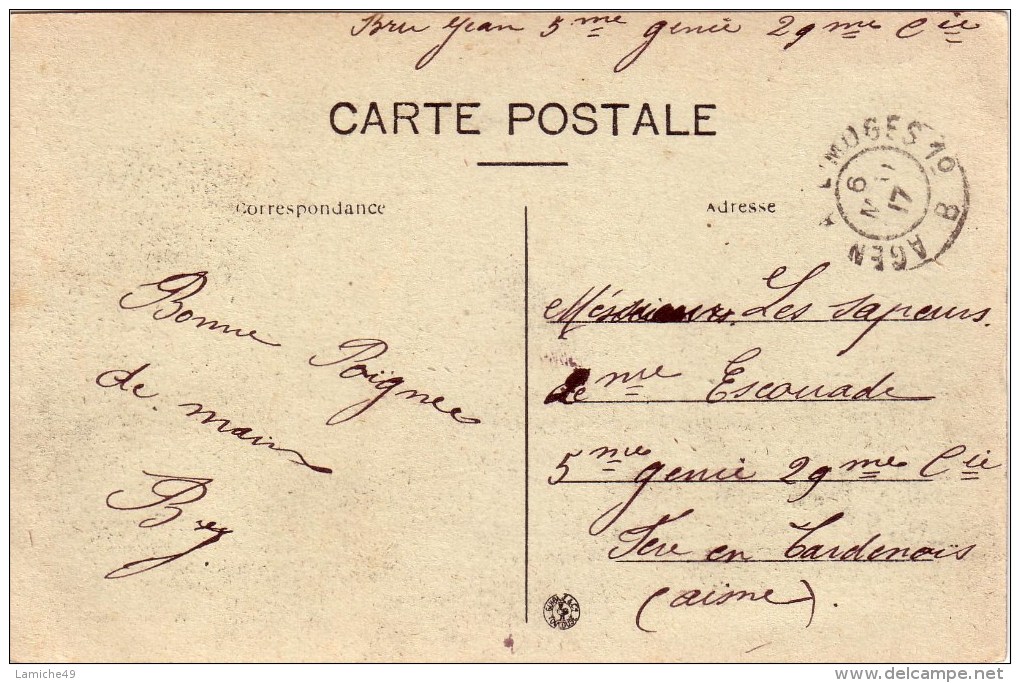 Bru Jean 5me genie 29me Cie
CARTE POSTALE
Correspondance
Adresse
LIMOGES 1º
B
6
17
AGEN
Bonne Poignee
de main
Bru
Les Sapeurs.
2eme Escouade
5me genie 29me Cie
Fere en Tardenois
(aisne).
Lamiche49
www.delcampe.net